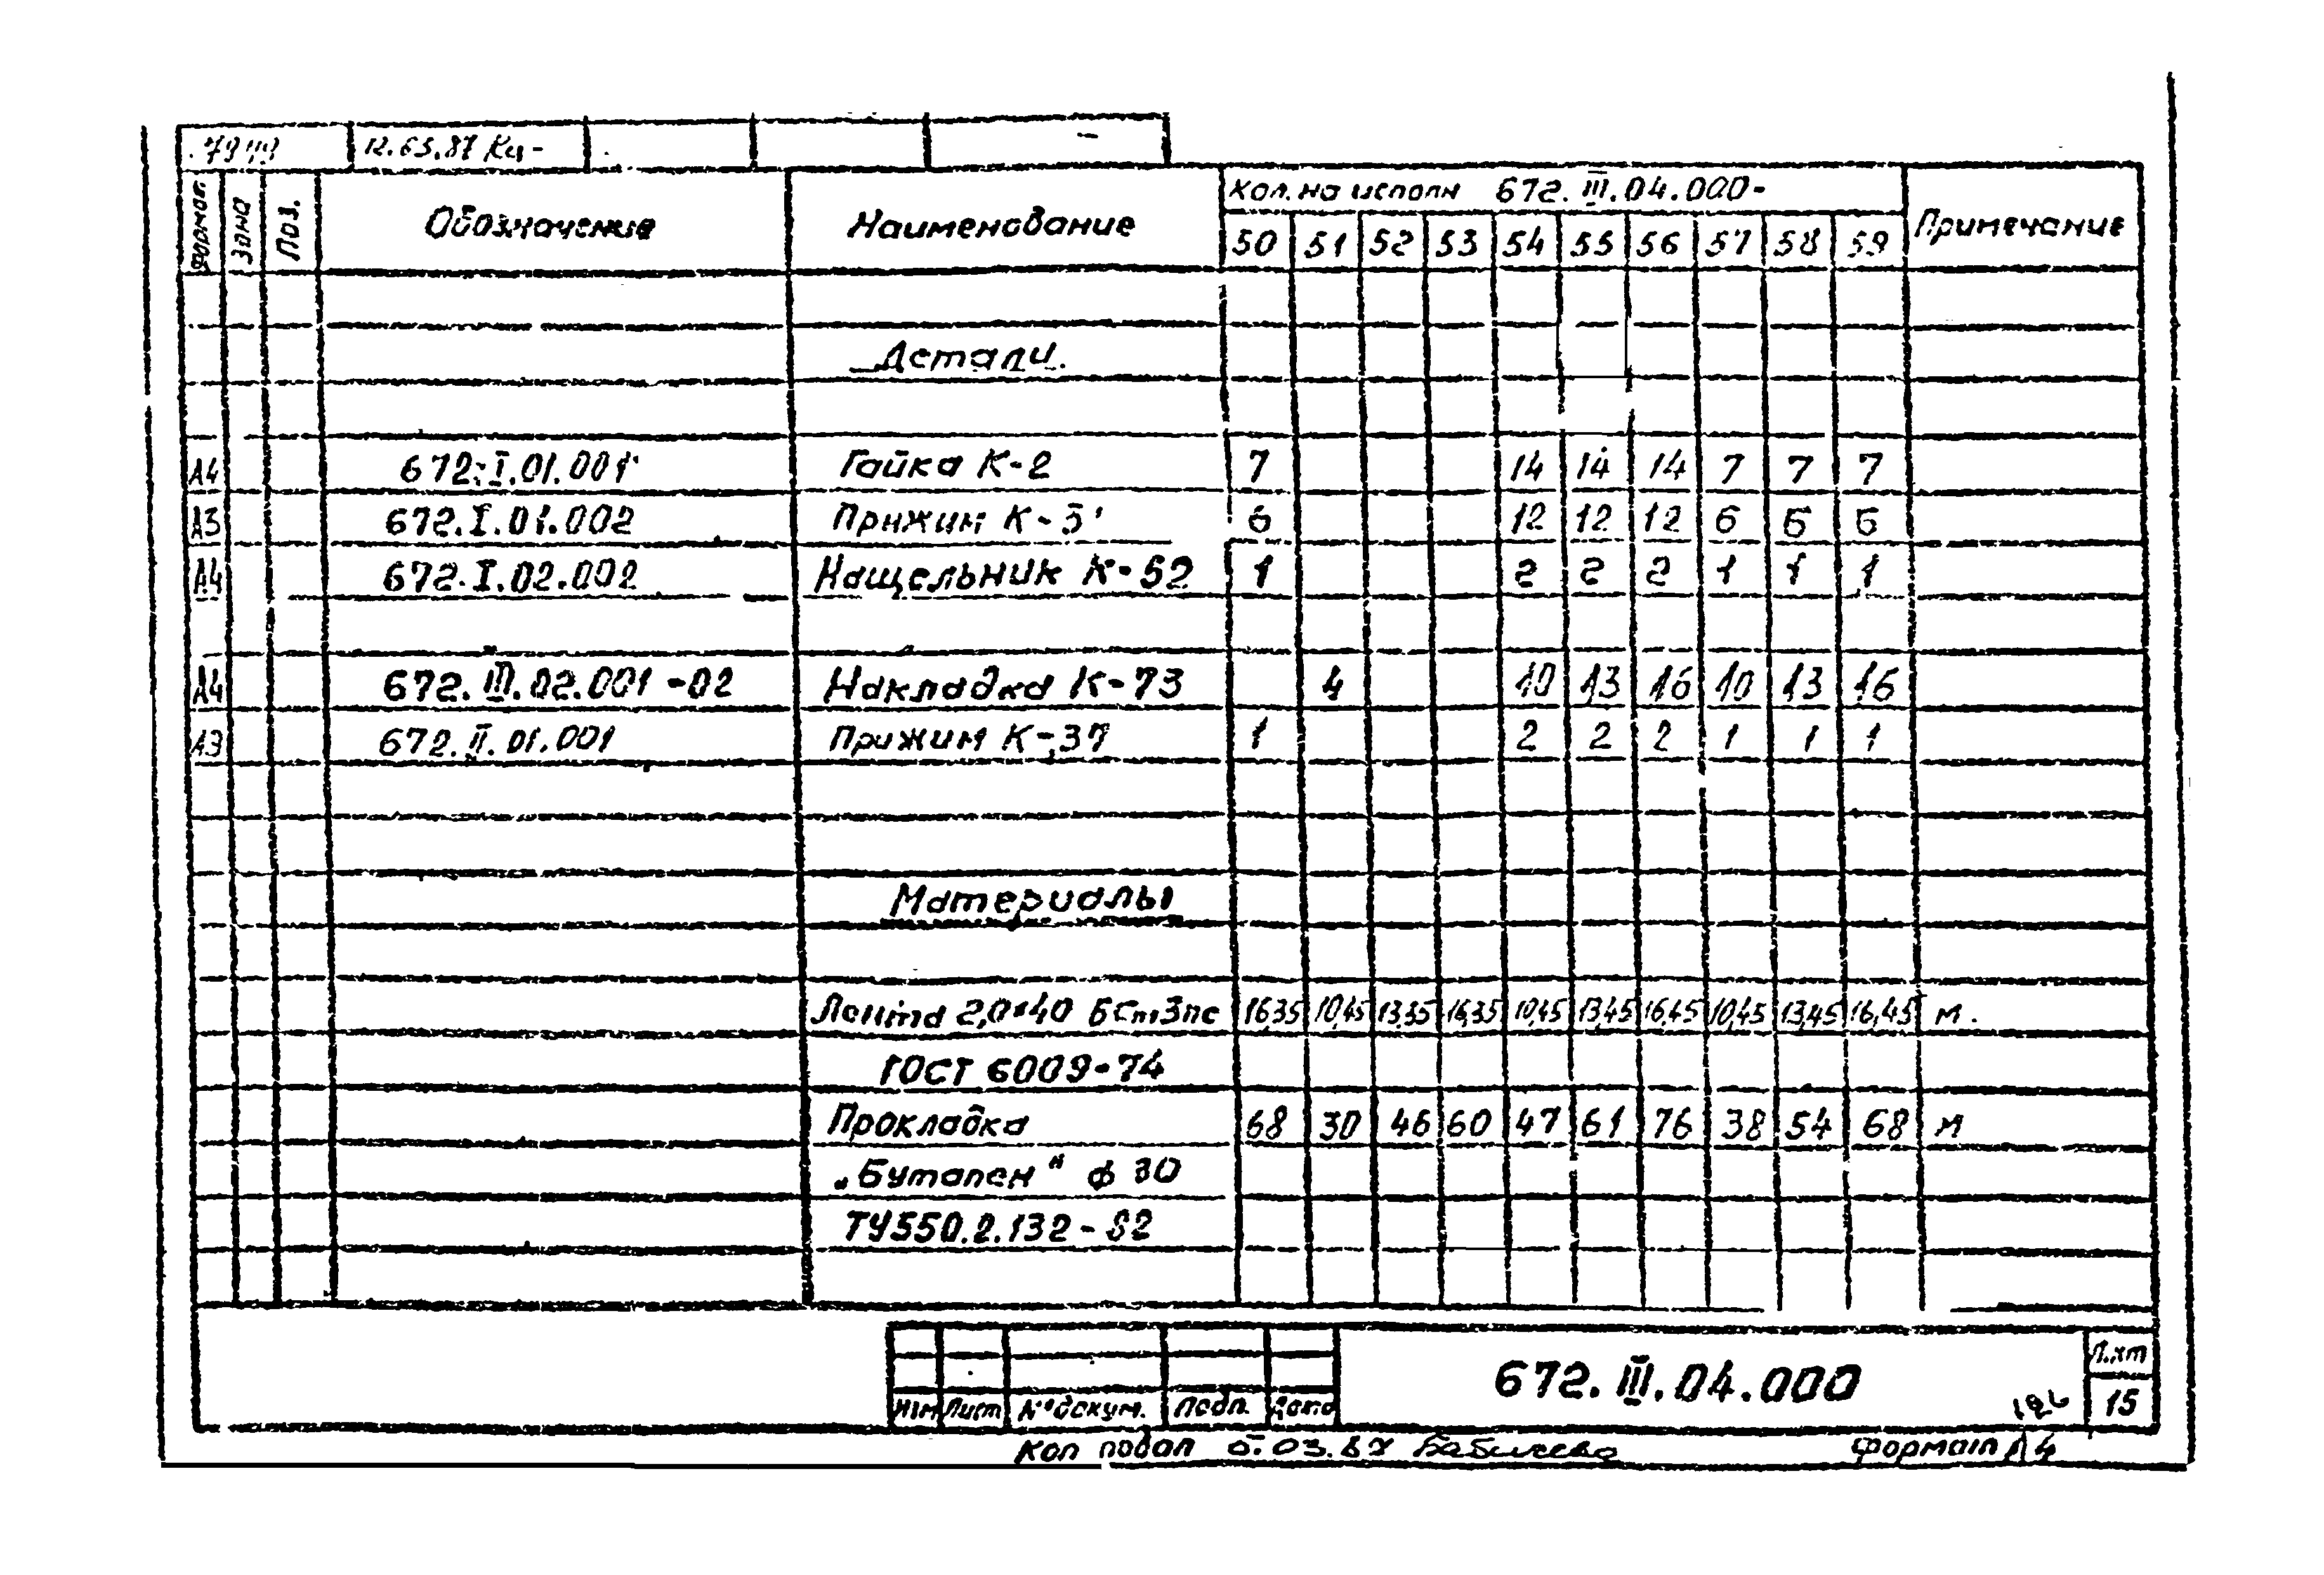 12.03.87
Формат Зона Поз. Обозначение Наименование Кол. на исполн 672.III.04.000- Примечание
50 51 52 53 54 55 56 57 58 59
Детали.
А4 672.I.01.001 Гайка К-2 7 14 14 14 7 7 7
А3 672.I.01.002 Прижим К-5 6 12 12 12 6 6 6
А4 672.I.02.002 Нащельник К-52 1 2 2 2 1 1 1
А4 672.III.02.001-02 Накладка К-73 4 10 13 16 10 13 16
А3 672.II.01.001 Прижим К-37 1 2 2 2 1 1 1
Материалы
Лента 2,0×40 БСт3пс 16,35 10,45 13,35 16,35 10,45 13,45 16,45 10,45 13,45 16,45 м.
ГОСТ 6009-74
Прокладка 68 30 46 60 47 61 76 38 54 68 м
„Бутапен" ф 30
ТУ550.2.132-82
672.III.04.000 Лист
Изм Лист №докум. Подп. Дата 15
Коп 03.87 Формат А4